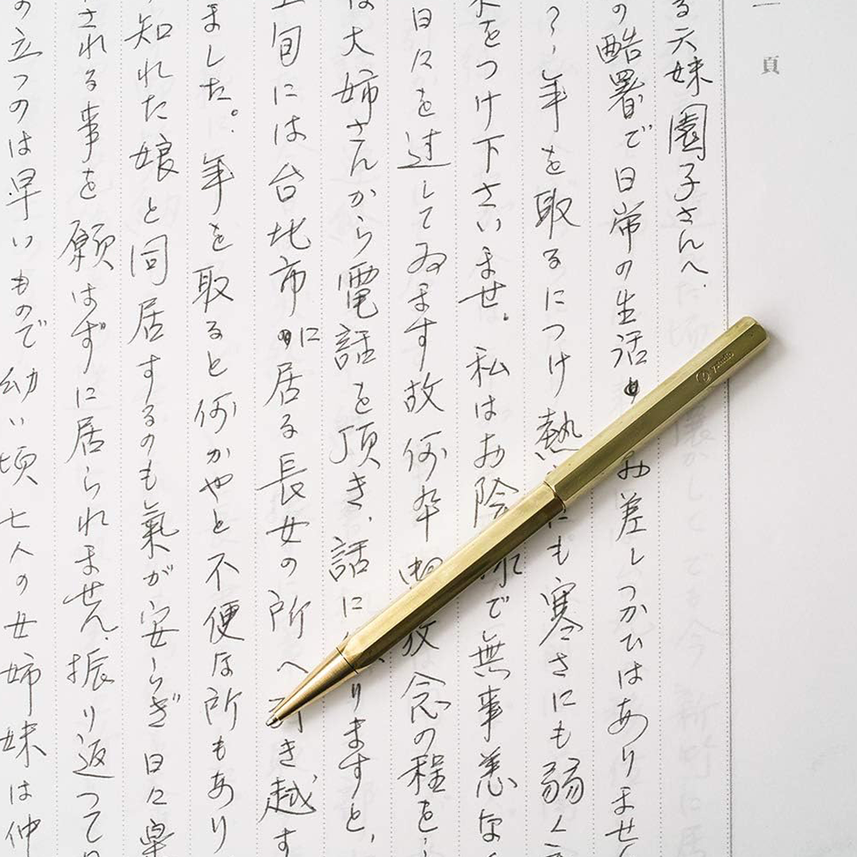 頁
る六妹園子さんへ
の酷署で日常の生活み差しつかひはありません
？年を取るにつけ熱にも寒さにも弱く
をつけ下さいませ。私はお陰で無事恙な
日々を過してゐます故何卒放念の程を
は大姉さんから電話を頂き、話にりますと、
上旬には台北市に居る長女の所へき越す
ました。年を取ると何かやと不便な所もあり
知れた娘と同居するのも氣が安らぎ日々楽
される事を願はずに居られません。振り返って
の立つのは早いもので幼い頃七人の女姉妹は仲